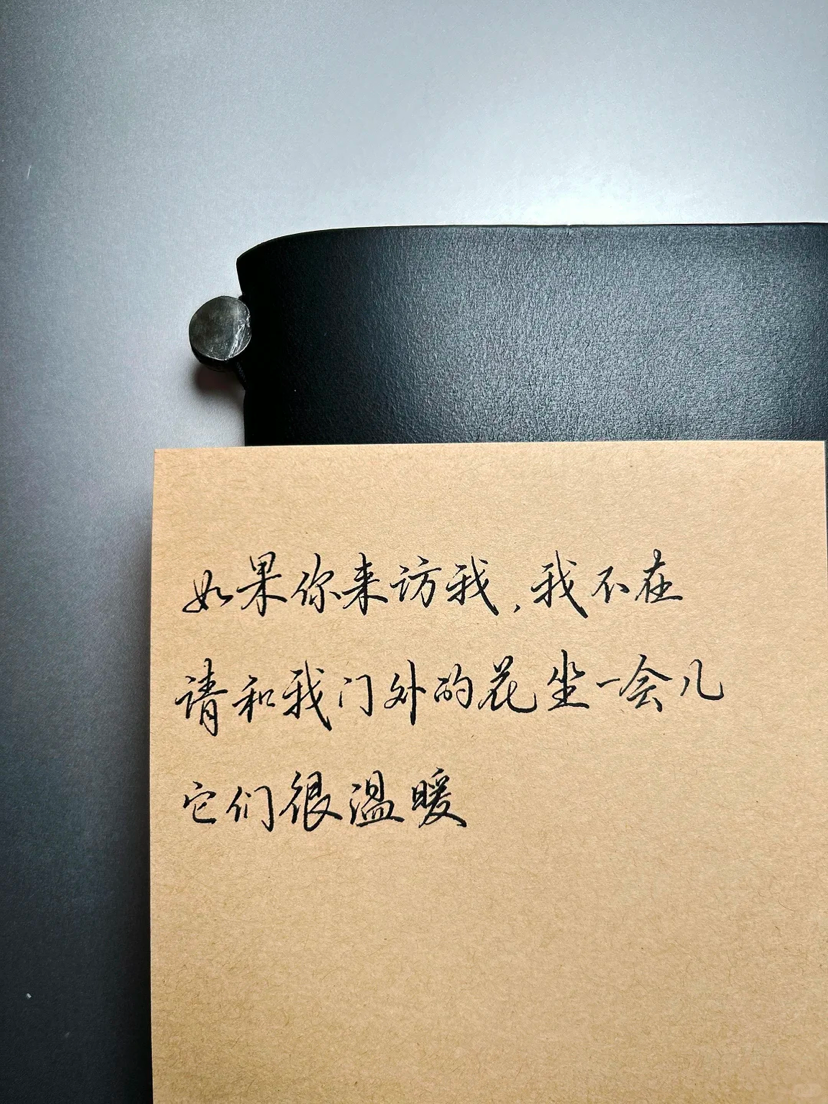 如果你来访我，我不在
请和我门外的花坐一会儿
它们很温暖